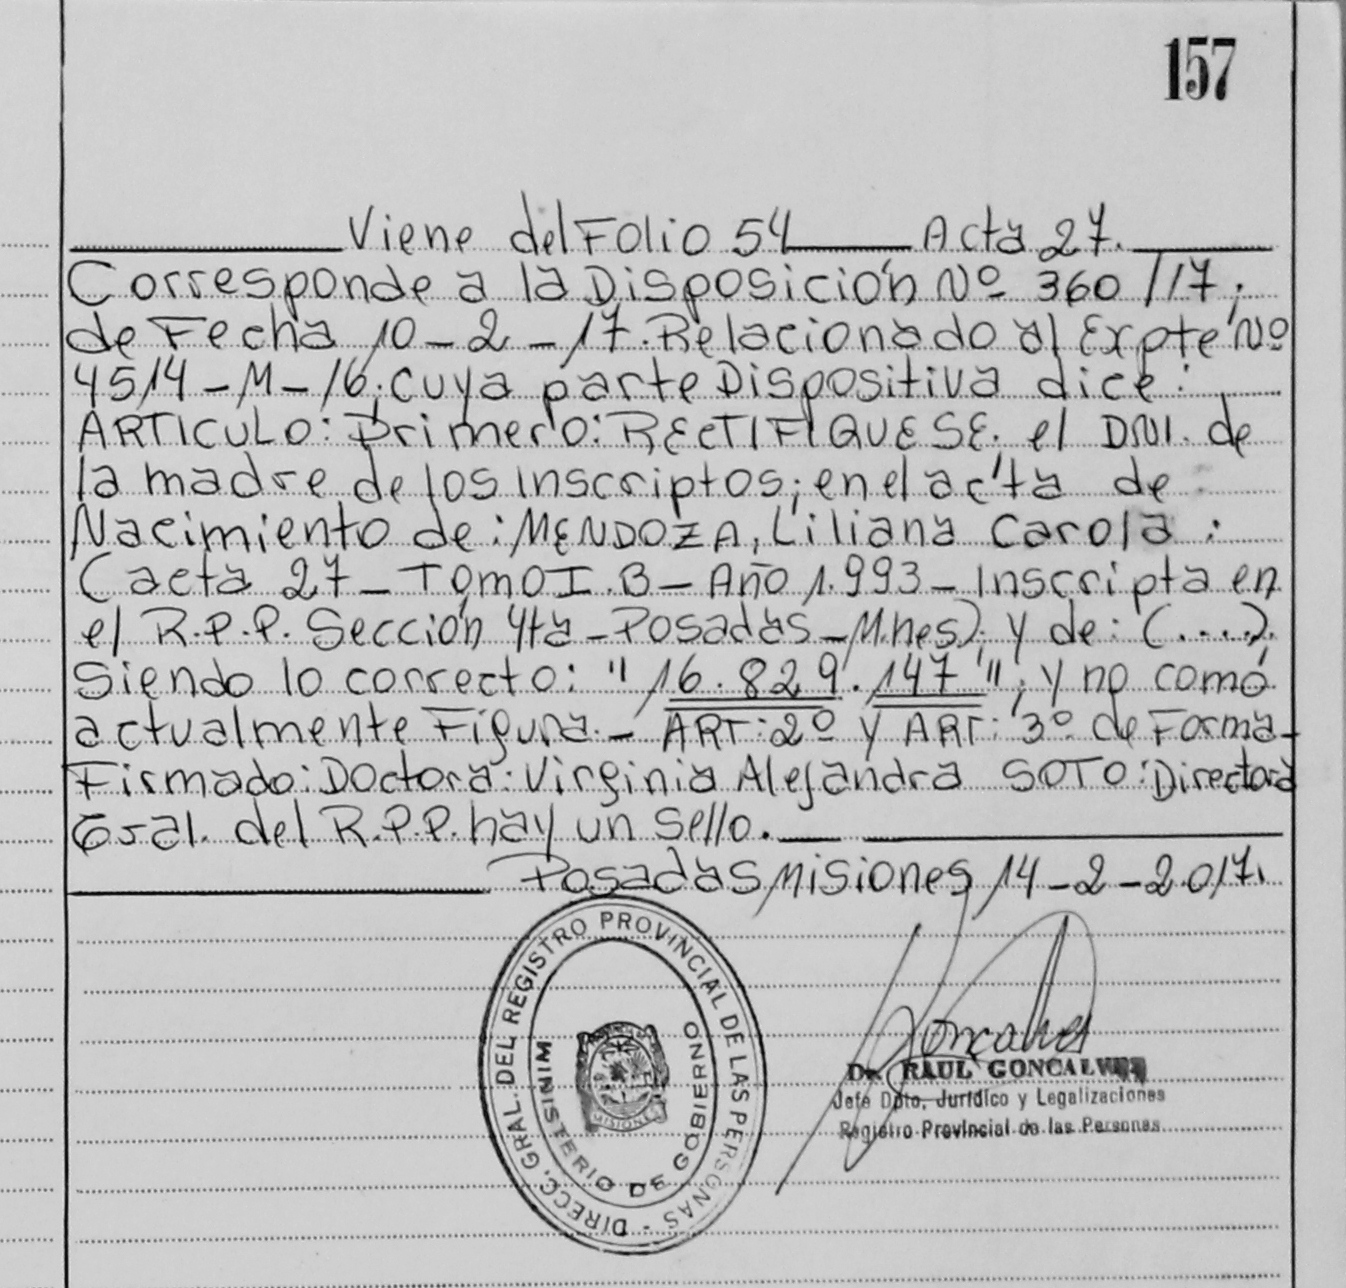 157
Viene del Folio 54 Acta 27.
Corresponde a la Disposición Nº 360/17;
de Fecha 10-2-17. Relacionado al Expte Nº
4514-M-16; cuya parte Dispositiva dice:
ARTICULO: Primero: RECTIFIQUESE. el DNI. de
la madre de los inscriptos; en el acta de
Nacimiento de: MENDOZA, Liliana Carola:
(acta 27 - Tomo I.B - Año 1.993 - Inscripta en
el R.P.P. Sección 4ta - Posadas - Mnes); y de: (....).
Siendo lo correcto: "16.829.147"; y no como
actualmente Figura. - ART: 2º y ART: 3º de Forma-
Firmado: Doctora: Virginia Alejandra SOTO: Directora
Gral. del R.P.P. hay un sello.
Posadas Misiones 14-2-2017.
DIRECC. GRAL. DEL REGISTRO PROVINCIAL DE LAS PERSONAS -
MINISTERIO DE GOBIERNO
MISIONES
Goncalves
Dr. RAUL GONCALVES
Jefe Dpto. Jurídico y Legalizaciones
Registro Provincial de las Personas